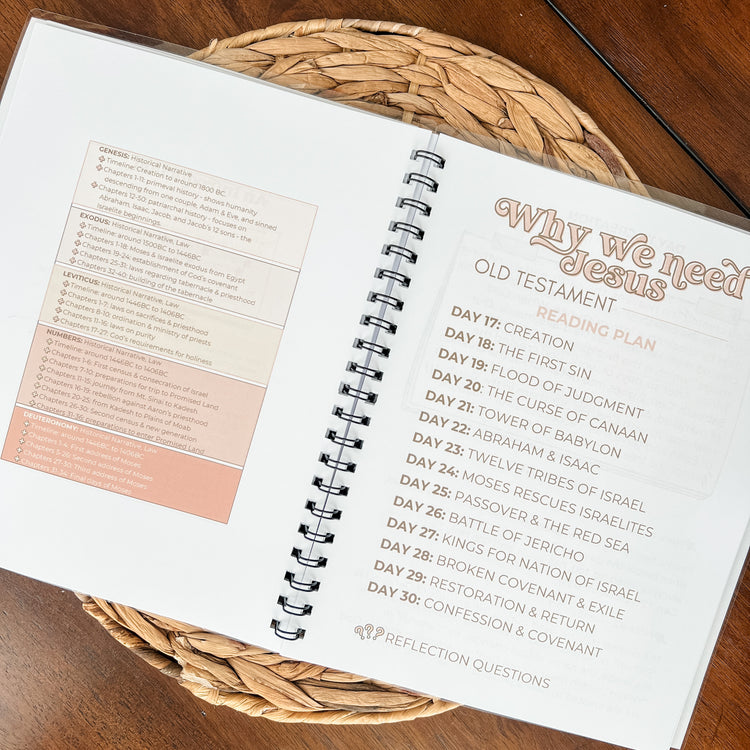 GENESIS: Historical Narrative
Timeline: Creation to around 1800 BC
Chapters 1-11: primeval history - shows humanity
descending from one couple, Adam & Eve, and sinned
Chapters 12-50: patriarchal history - focuses on
Abraham, Isaac, Jacob, and Jacob's 12 sons - the
Israelite beginnings.
EXODUS: Historical Narrative, Law
Timeline: around 1500BC to 1446BC
Chapters 1-18: Moses & Israelite exodus from Egypt
Chapters 19-24: establishment of God's covenant
Chapters 25-31: laws regarding tabernacle & priesthood
Chapters 32-40: building of the tabernacle
LEVITICUS: Historical Narrative, Law
Timeline: around 1446BC to 1406BC
Chapters 1-7: laws on sacrifices & priesthood
Chapters 8-10: ordination & ministry of priests
Chapters 11-16: laws on purity
Chapters 17-27: God's requirements for holiness
NUMBERS: Historical Narrative, Law
Timeline: around 1446BC to 1406BC
Chapters 1-6: First census & consecration of Israel
Chapters 7-10: preparations for trip to Promised Land
Chapters 11-15: journey from Mt. Sinai to Kadesh
Chapters 16-19: rebellion against Aaron's priesthood
Chapters 20-25: from Kadesh to Plains of Moab
Chapters 26-30: Second census & new generation
Chapters 31-36: preparations to enter Promised Land
DEUTERONOMY: Historical Narrative, Law
Timeline: around 1446BC to 1406BC
Chapters 1-4: First address of Moses
Chapters 5-26: Second address of Moses
Chapters 27-30: Third address of Moses
Chapters 31-34: Final days of Moses
Why we need
Jesus
OLD TESTAMENT
READING PLAN
DAY 17: CREATION
DAY 18: THE FIRST SIN
DAY 19: FLOOD OF JUDGMENT
DAY 20: THE CURSE OF CANAAN
DAY 21: TOWER OF BABYLON
DAY 22: ABRAHAM & ISAAC
DAY 23: TWELVE TRIBES OF ISRAEL
DAY 24: MOSES RESCUES ISRAELITES
DAY 25: PASSOVER & THE RED SEA
DAY 26: BATTLE OF JERICHO
DAY 27: KINGS FOR NATION OF ISRAEL
DAY 28: BROKEN COVENANT & EXILE
DAY 29: RESTORATION & RETURN
DAY 30: CONFESSION & COVENANT
??? REFLECTION QUESTIONS